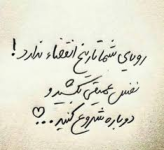 رویای شما تاریخ انقضاء ندارد!
نفس عمیقی بکشید و
دوباره شروع کنید...♡